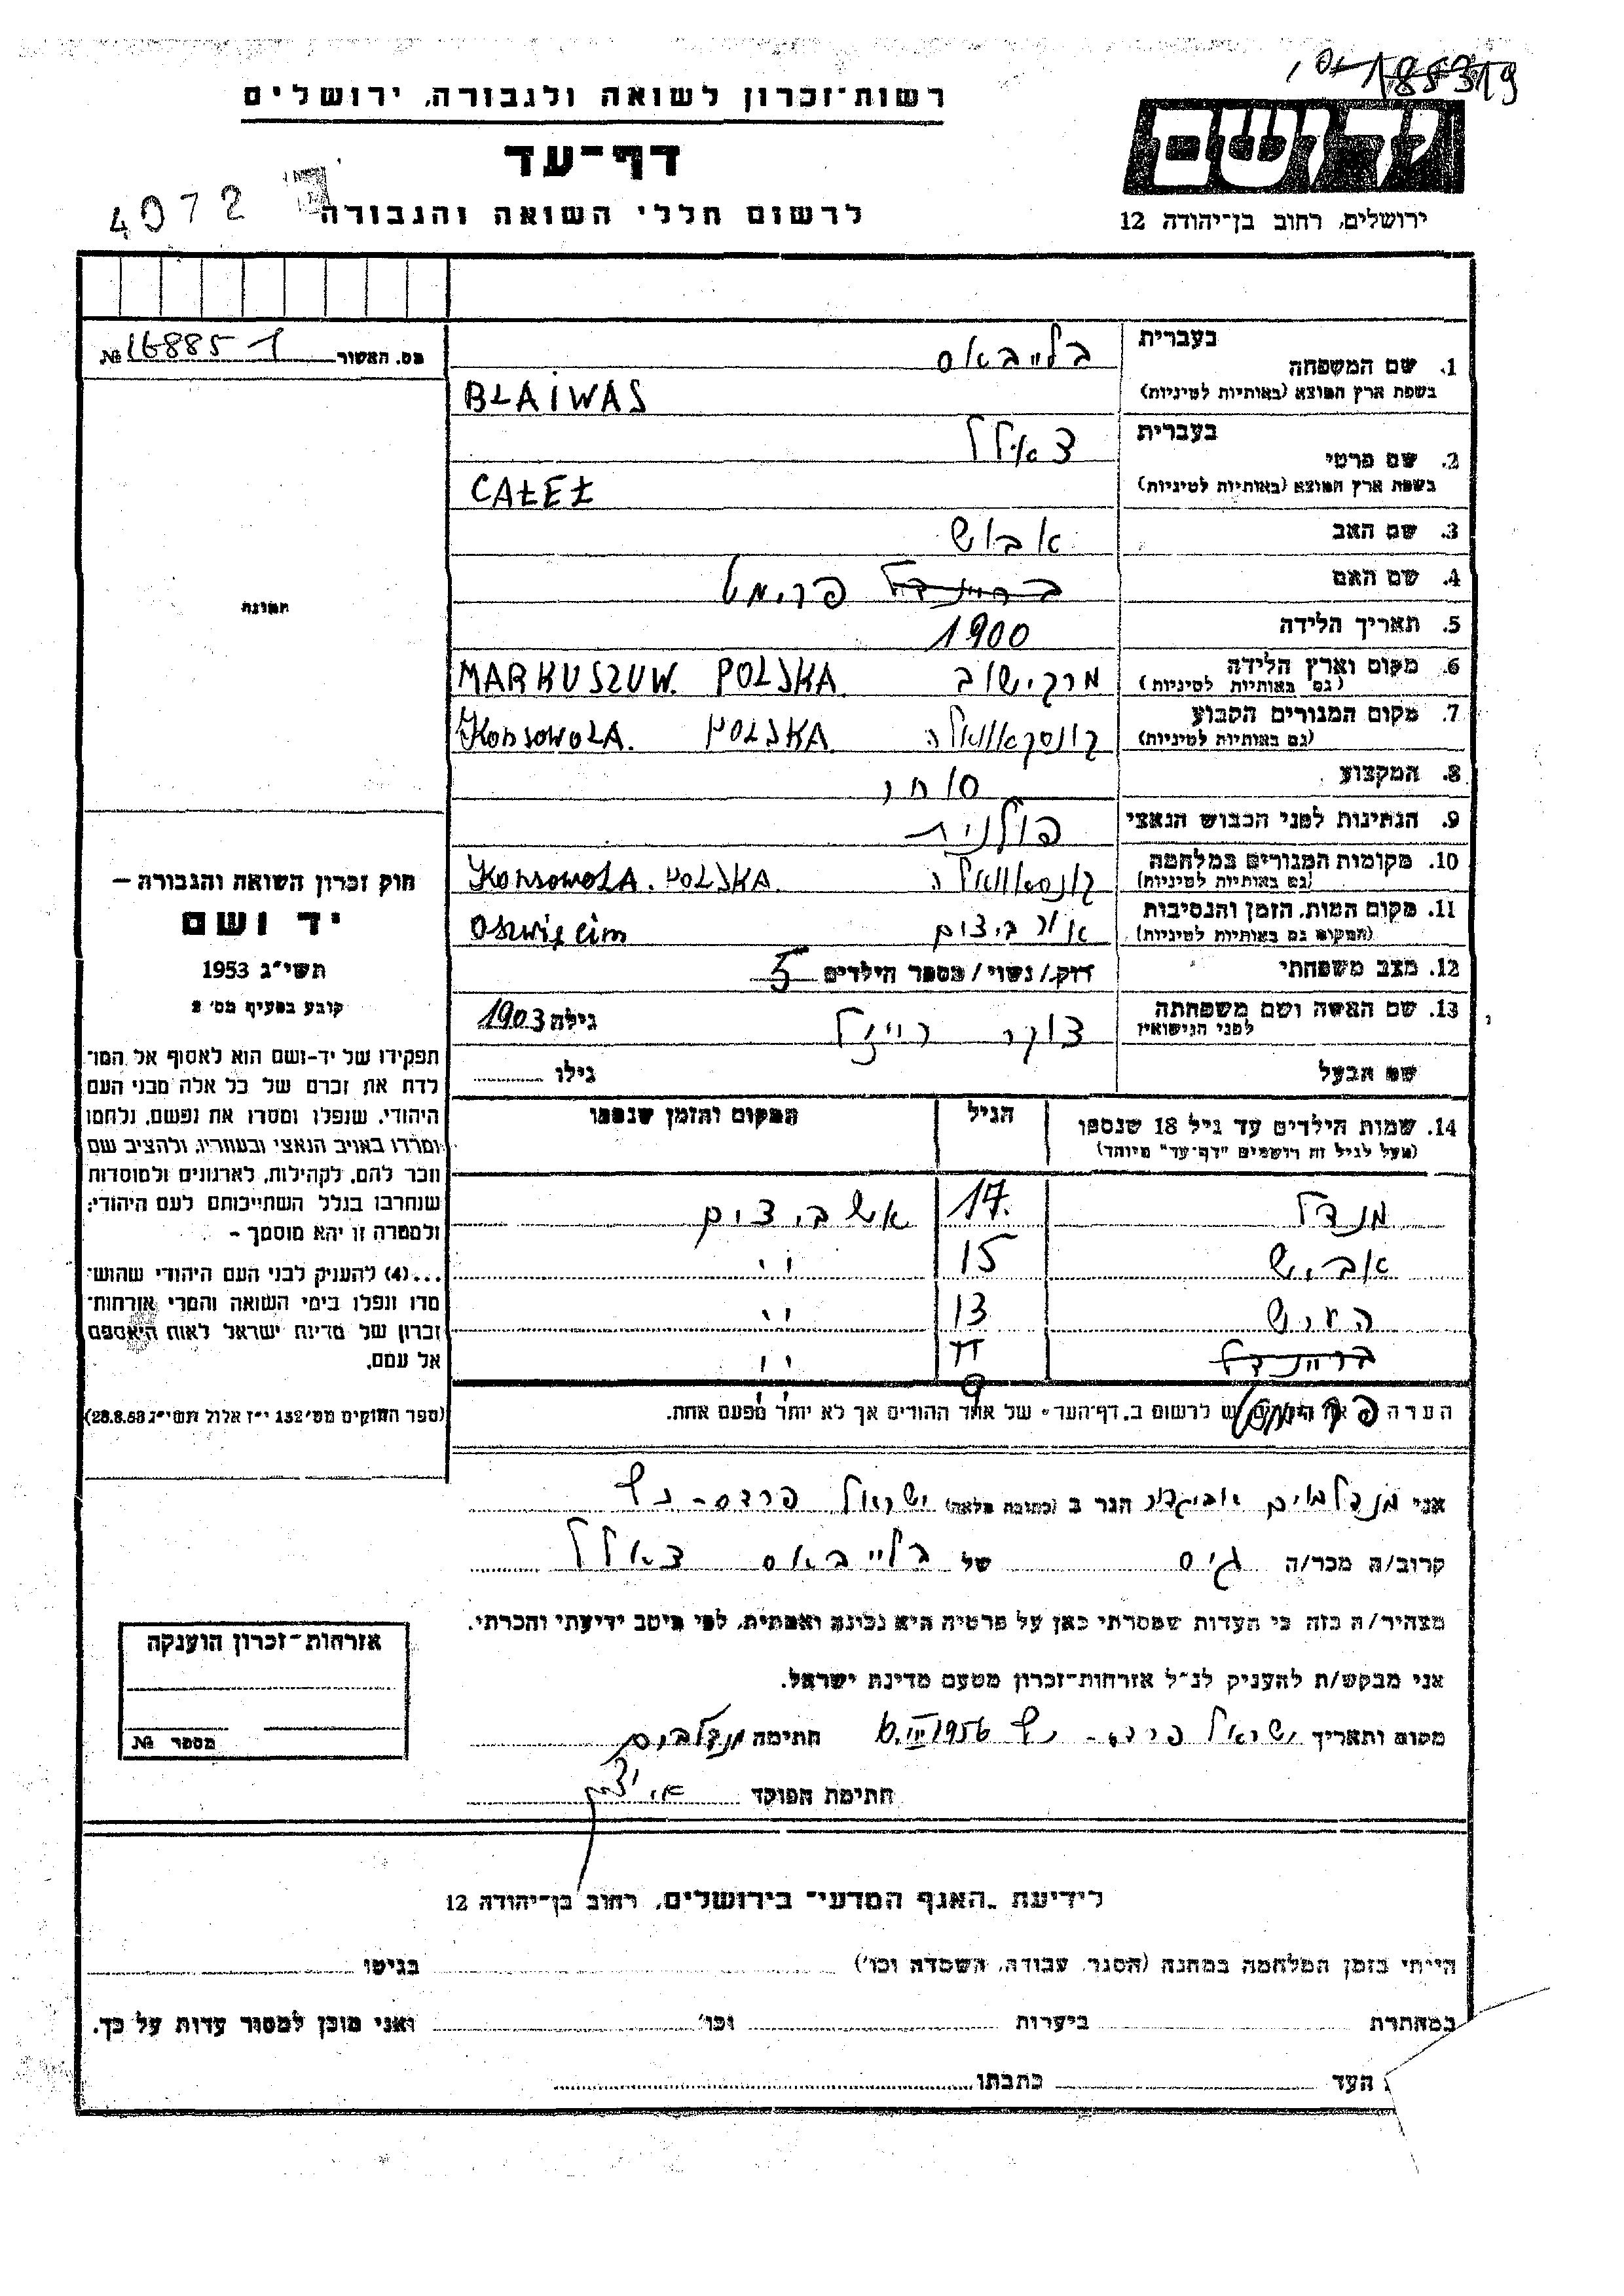 185319
רשות-זכרון לשואה ולגבורה, ירושלים
יד ושם
דף-עד
4072
לרשום חללי השואה והגבורה
ירושלים, רחוב בן-יהודה 12
מס. האשור 168851 №
בעברית
1. שם המשפחה בלייבאס
בשפת ארץ המוצא (באותיות לטיניות) BŁAIWAS
בעברית
2. שם פרטי צאלל
בשפת ארץ המוצא (באותיות לטיניות) CAŁEŁ
3. שם האב אבוש
4. שם האם ברײנדל פרימט
5. תאריך הלידה 1900
6. מקום וארץ הלידה מרקישוב MARKUSZUW. POLSKA
(גם באותיות לטיניות)
7. מקום המגורים הקבוע KonsowolA. POLSKA
(גם באותיות לטיניות)
8. המקצוע סוחר
9. הנתינות לפני הכבוש הנאצי פולנית
10. מקומות המגורים במלחמה KonsowolA. POLSKA
(גם באותיות לטיניות)
11. מקום המות, הזמן והנסיבות Oswięcim
(המקום גם באותיות לטיניות)
12. מצב משפחתי רווק/נשוי/מספר הילדים 5
13. שם האשה ושם משפחתה צוקר רייזל גילה 1903
לפני הנישואין
שם הבעל גילו
14. שמות הילדים עד גיל 18 שנספו הגיל המקום והזמן שנספו
(מעל לגיל זה רושמים "דף-עד" מיוחד)
מנדל 17 אושביצים
אביש 15 ״
הערש 13 ״
ברײנדל 11 ״
9 ״
הערה את הילדים יש לרשום ב"דף-העד" של אחד ההורים אך לא יותר מפעם אחת.
תמונה
חוק זכרון השואה והגבורה –
יד ושם
תשי"ג 1953
קובע בסעיף מס' 2
תפקידו של יד-ושם הוא לאסוף אל המו-
לדת את זכרם של כל אלה מבני העם
היהודי, שנפלו ומסרו את נפשם, נלחמו
ומרדו באויב הנאצי ובעוזריו, ולהציב שם
וזכר להם, לקהילות, לארגונים ולמוסדות
שנחרבו בגלל השתייכותם לעם היהודי;
ולמטרה זו יהא מוסמך –
...(4) להעניק לבני העם היהודי שהוש-
מדו ונפלו בימי השואה והמרי אזרחות-
זכרון של מדינת ישראל לאות היאספם
אל עמם.
(ספר החוקים מס' 132 י"ז אלול תשי"ג 28.8.53)
אני מנדלבוים אביגדור הגר ב (כתובת מלאה) ישראל פרדס-
קרוב/ה מכר/ה גיס של בלייבאס צאלל
מצהיר/ה בזה כי העדות שמסרתי כאן על פרטיה היא נכונה ואמתית, לפי מיטב ידיעתי והכרתי.
אני מבקש/ת להעניק לנ"ל אזרחות-זכרון מטעם מדינת ישראל.
מקום ותאריך ישראל פרדס- 6.III 1956 חתימה מנדלבוים
חתימת הפוקד
אזרחות-זכרון הוענקה
מספר №
לידיעת "האגף המדעי" בירושלים, רחוב בן-יהודה 12
הייתי בזמן המלחמה במחנה (הסגר, עבודה, השמדה וכו') בגיטו
במחתרת ביערות וכו' ואני מוכן למסור עדות על כך.
העד כתבתו